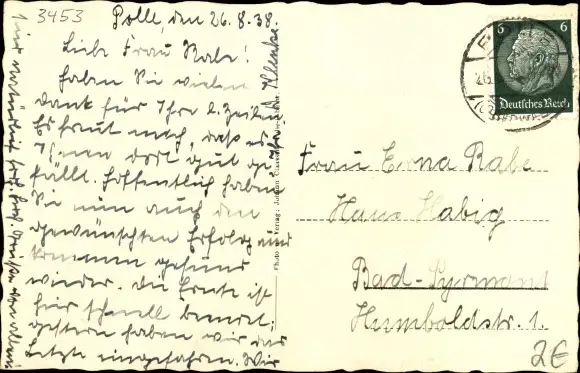 3453
Polle, den 26.8.38.
Liebe Frau Rabe!
Haben Sie vielen
Dank für Ihre l. Zeilen.
Es freut mich, daß es
Ihnen dort gut ge
fällt. Hoffentlich haben
Sie nun auch den
gewünschten Erfolg und
kommen gesund
wieder. Die Ernte ist
hier schnell beendet;
gestern haben wir das
Letzte eingefahren. Wir
6 6
Deutsches Reich
Frau Erna Rabe
Haus Habig
Bad-Pyrmont
Humboldstr. 1.
2€